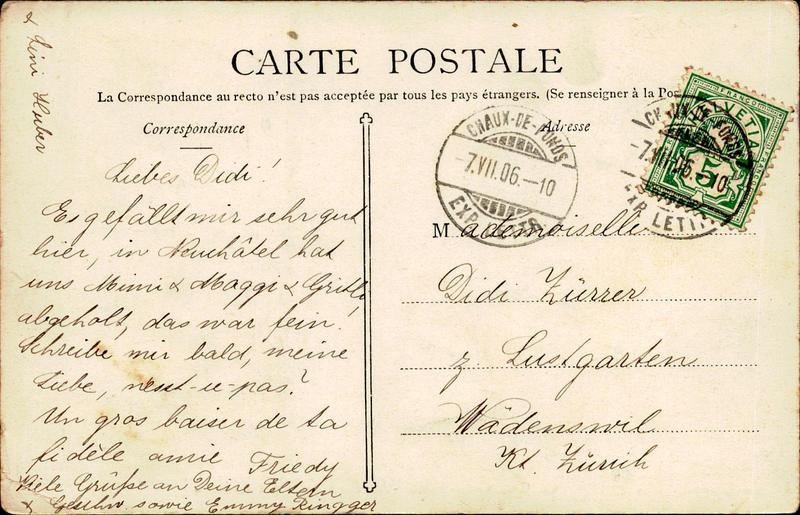 CARTE POSTALE
La Correspondance au recto n'est pas acceptée par tous les pays étrangers. (Se renseigner à la Pos
Correspondance
Liebes Didi!
Es gefällt mir sehr gut
hier, in Neuchâtel hat
uns Mimi & Maggi & Gritli
abgeholt, das war fein!
Schreibe mir bald, meine
Liebe, nesst-ce-pas?
Un gros baiser de ta
fidèle amie Friedy
Viele Grüße an Deine Eltern
& Geschw. sowie Emmy Ringger
& Lini Huber
Adresse
Mademoiselle
Didi Zürrer
z Lustgarten
Wädenswil
Kt. Zürich
CHAUX-DE-FONDS
-7.VII.06.-10
EXP. LETTR.
CHAUX-DE-FONDS
-7.VII.06.-10
EXP. LETTR.
FRANCO
HELVETIA
5